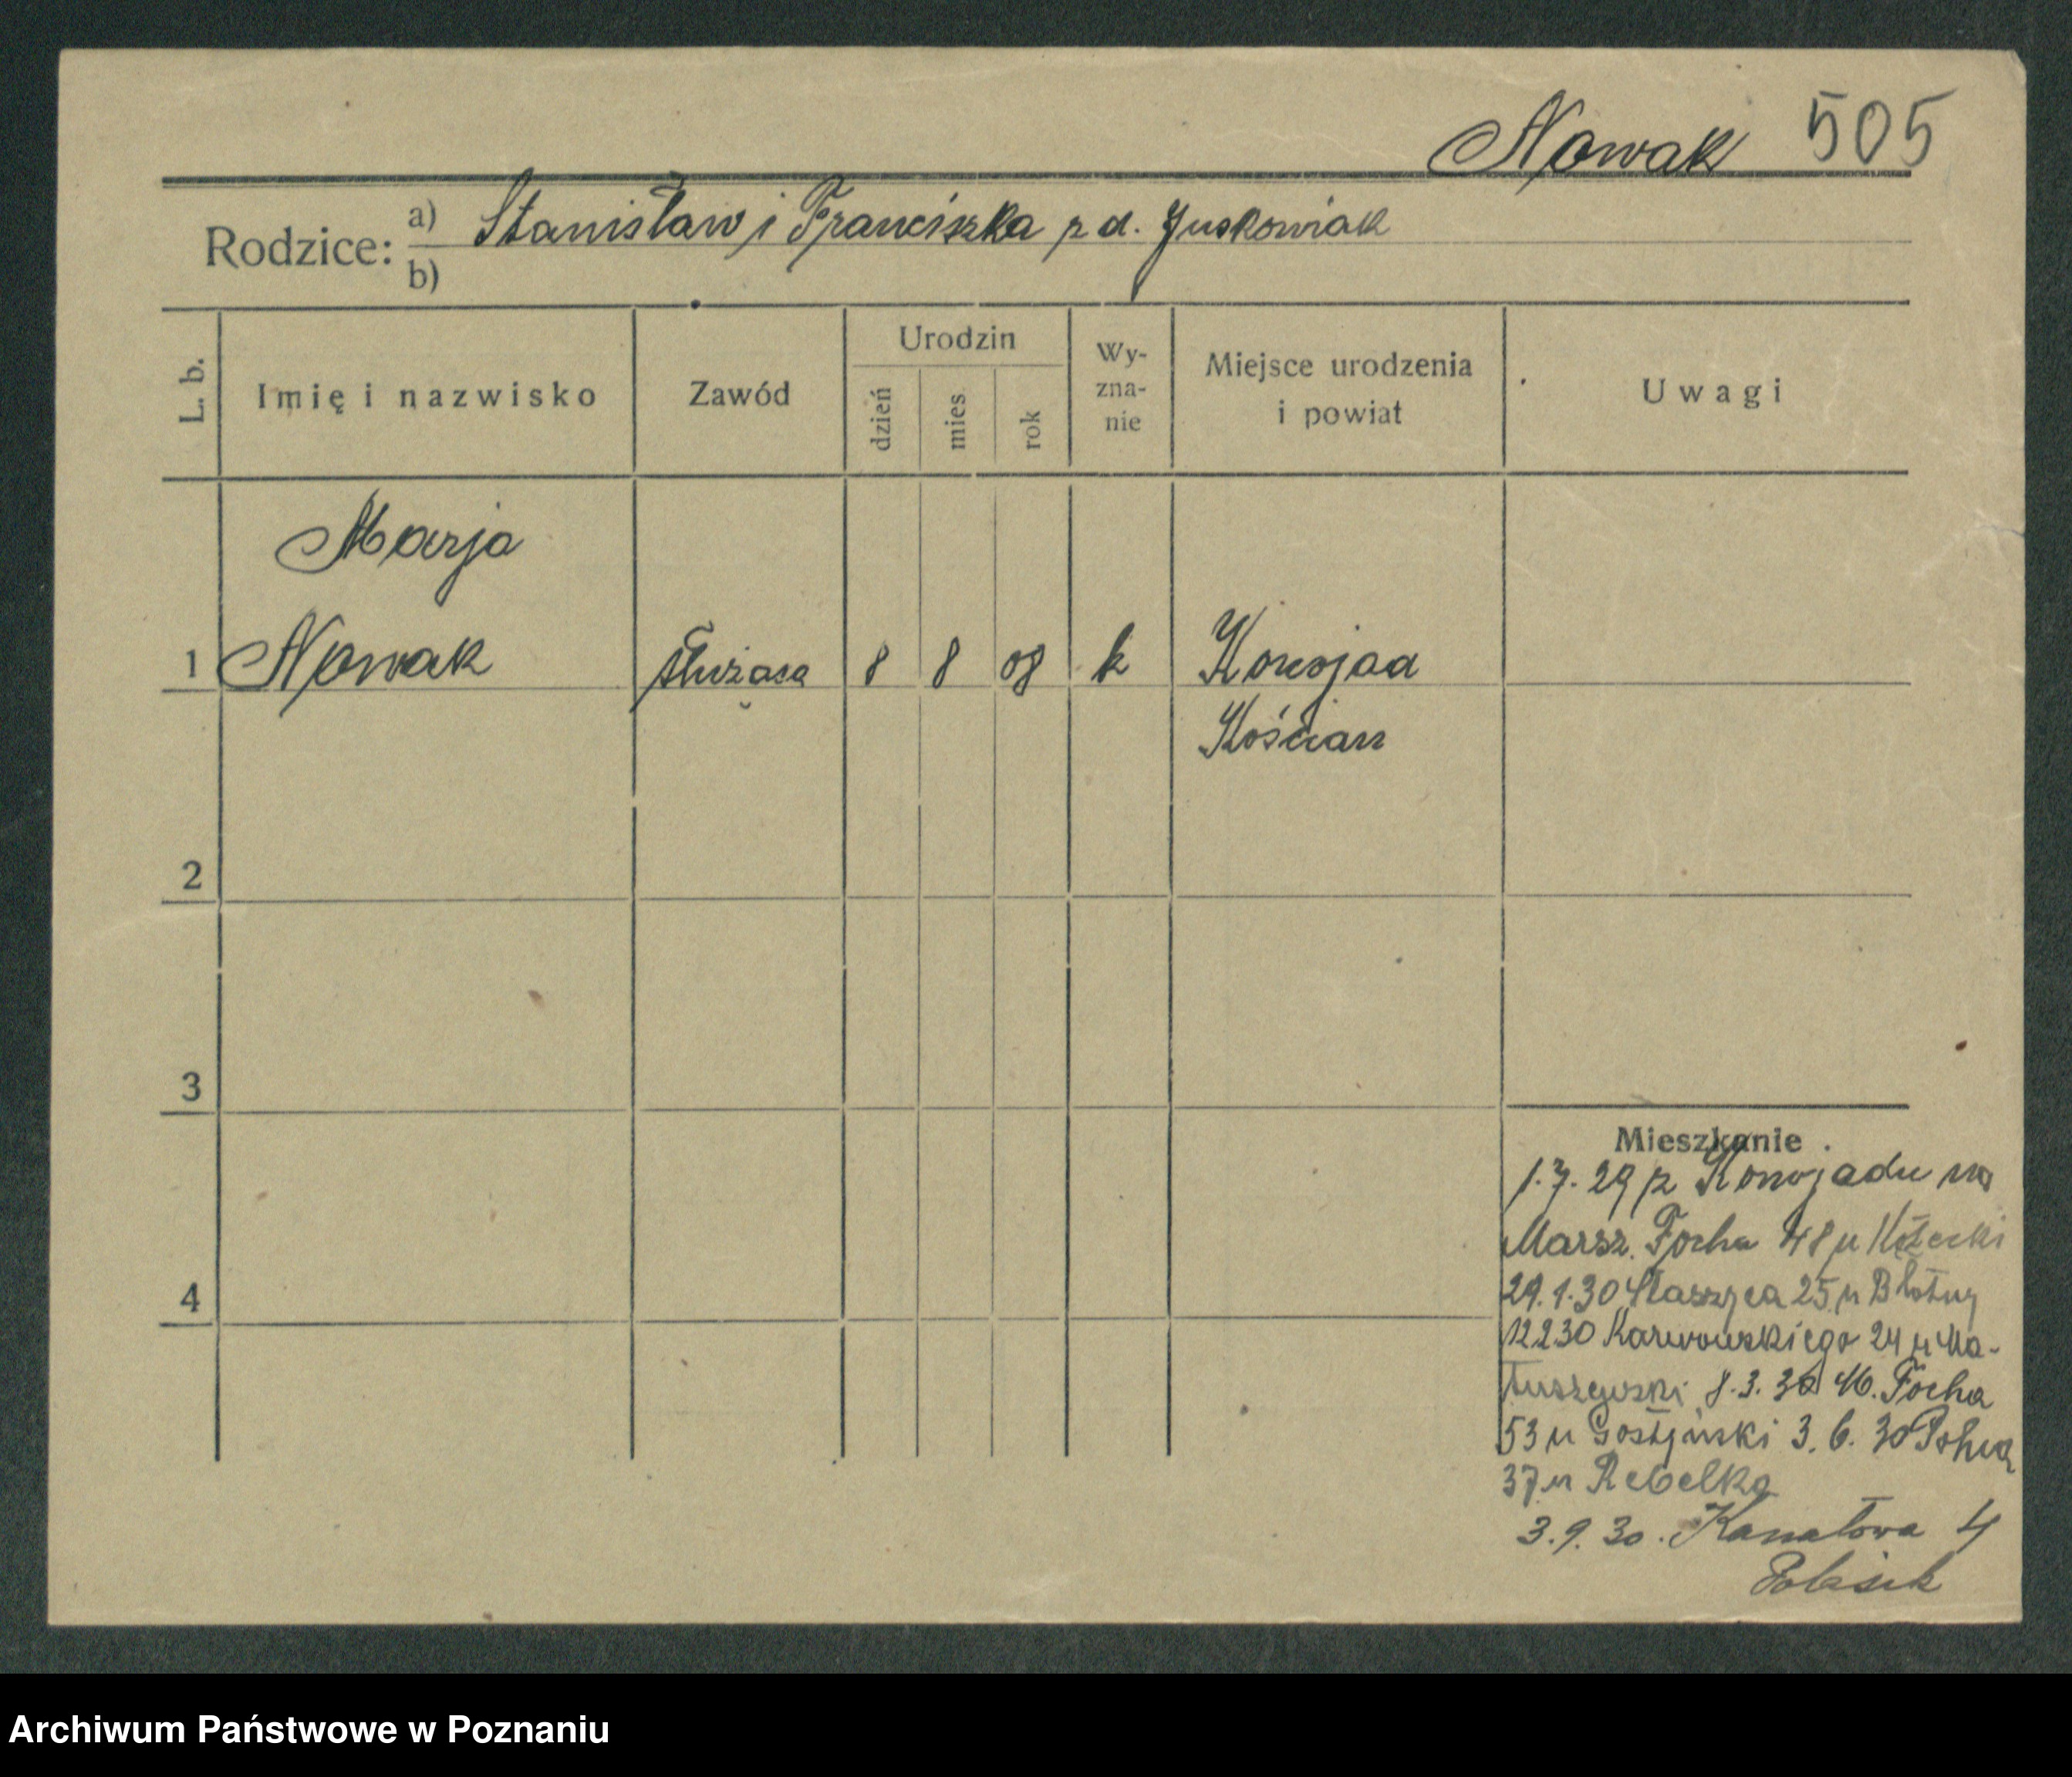 Nowak 505
Rodzice: a) Stanisław i Franciszka z d. Juskowiak
b)
L. b.
Imię i nazwisko
Zawód
Urodzin
dzień
mies
rok
Wy-
zna-
nie
Miejsce urodzenia
i powiat
Uwagi
Marja
1 Nowak służąca 8 8 08 k Konojad
Kościan
2
3
4
Mieszkanie
1.7.29 z Konojadu na
Marsz. Focha 48 u
29.1.30 Staszyca 25 u
12230 Karwowskiego 24 u Ma-
tuszewski 8.3.30 M. Focha
53 u Gostyński 3.6.30 Polna
37 u Rebelka
3.9.30. Kanałowa 4